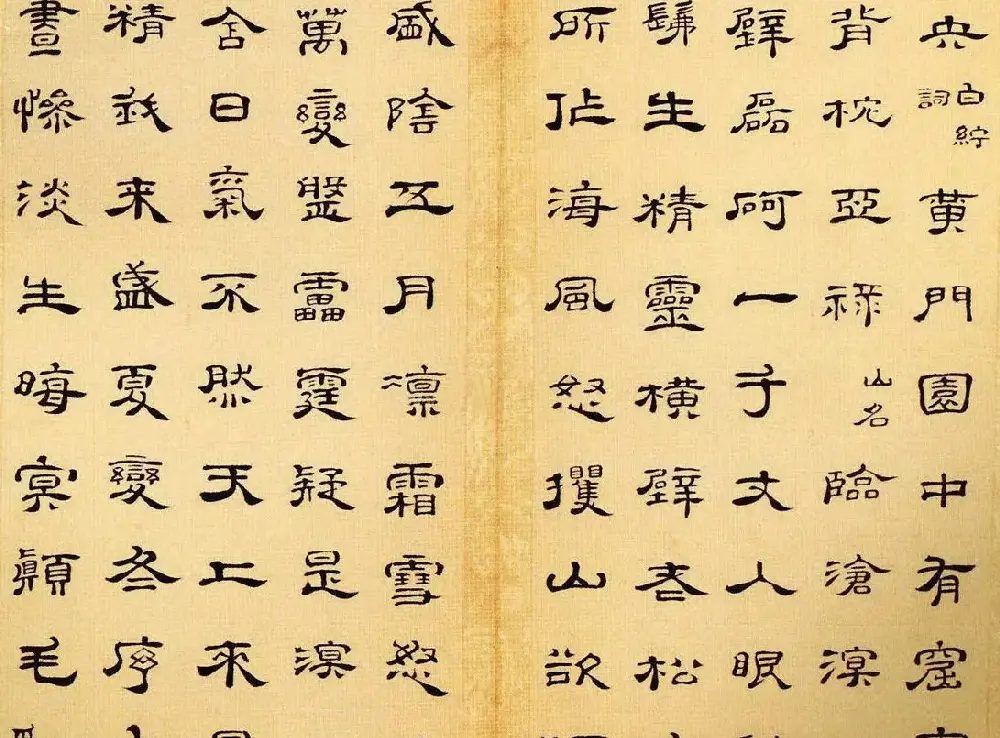 央白紵詞黃門園中有窟
背枕亞祿山名臨滄溟
壁磊砢一千丈人眼
髴生精靈橫壁老松
所作海風怒攫山欲
盛陰五月凛霜雪怒
萬變盤雷霆疑是溟
含日氣不然天上來
精哉来盛夏變冬序
晝慘淡生晦冥顛毛